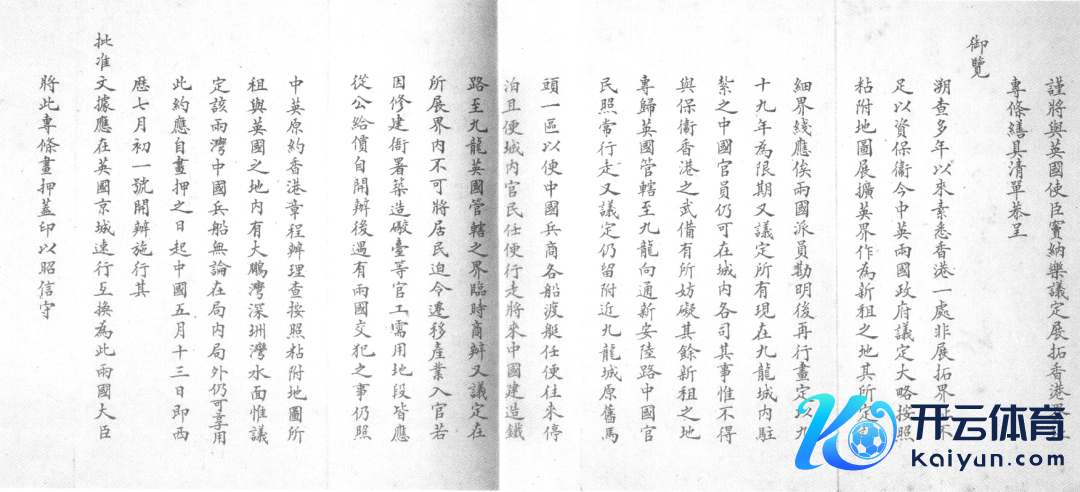 謹將與英國使臣竇納樂議定展拓香港
專條繕具清單恭呈
御覽
溯查多年以來素悉香港一處非展拓界址不
足以資保衛今中英兩國政府議定大略按照
粘附地圖展擴英界作為新租之地其所定
細界綫應俟兩國派員勘明後再行畫定以九
十九年為限期又議定所有現在九龍城內駐
紮之中國官員仍可在城內各司其事惟不得
與保衛香港之武備有所妨礙其餘新租之地
專歸英國管轄至九龍向通新安陸路中國官
民照常行走又議定仍留附近九龍城原舊馬
頭一區以便中國兵商各船渡艇任便往來停
泊且便城內官民任便行走將來中國建造鐵
路至九龍英國管轄之界臨時商辦又議定在
所展界內不可將居民迫令遷移產業入官若
因修建衙署築造礮臺等官工需用地段皆應
從公給價自開辦後遇有兩國交犯之事仍照
中英原約香港章程辦理查按照粘附地圖所
租與英國之地內有大鵬灣深圳灣水面惟議
定該兩灣中國兵船無論在局內局外仍可享用
此約應自畫押之日起中國五月十三日即西
歷七月初一號開辦施行其
批准文據應在英國京城速行互換為此兩國大臣
將此專條畫押蓋印以昭信守
开云体育
kaiyun.com